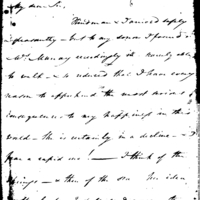 My dear Sir,
Huisman & I arrived safely &
pleasantly — but to my sorrow I found
Mrs Murray exceedingly ill scarcely able
to walk — & so reduced that I have every
reason to apprehend the most serious
consequences to my happiness in this
world — She is certainly in a decline — & I
fear a rapid one! — I think of the
Springs — & then of the sea